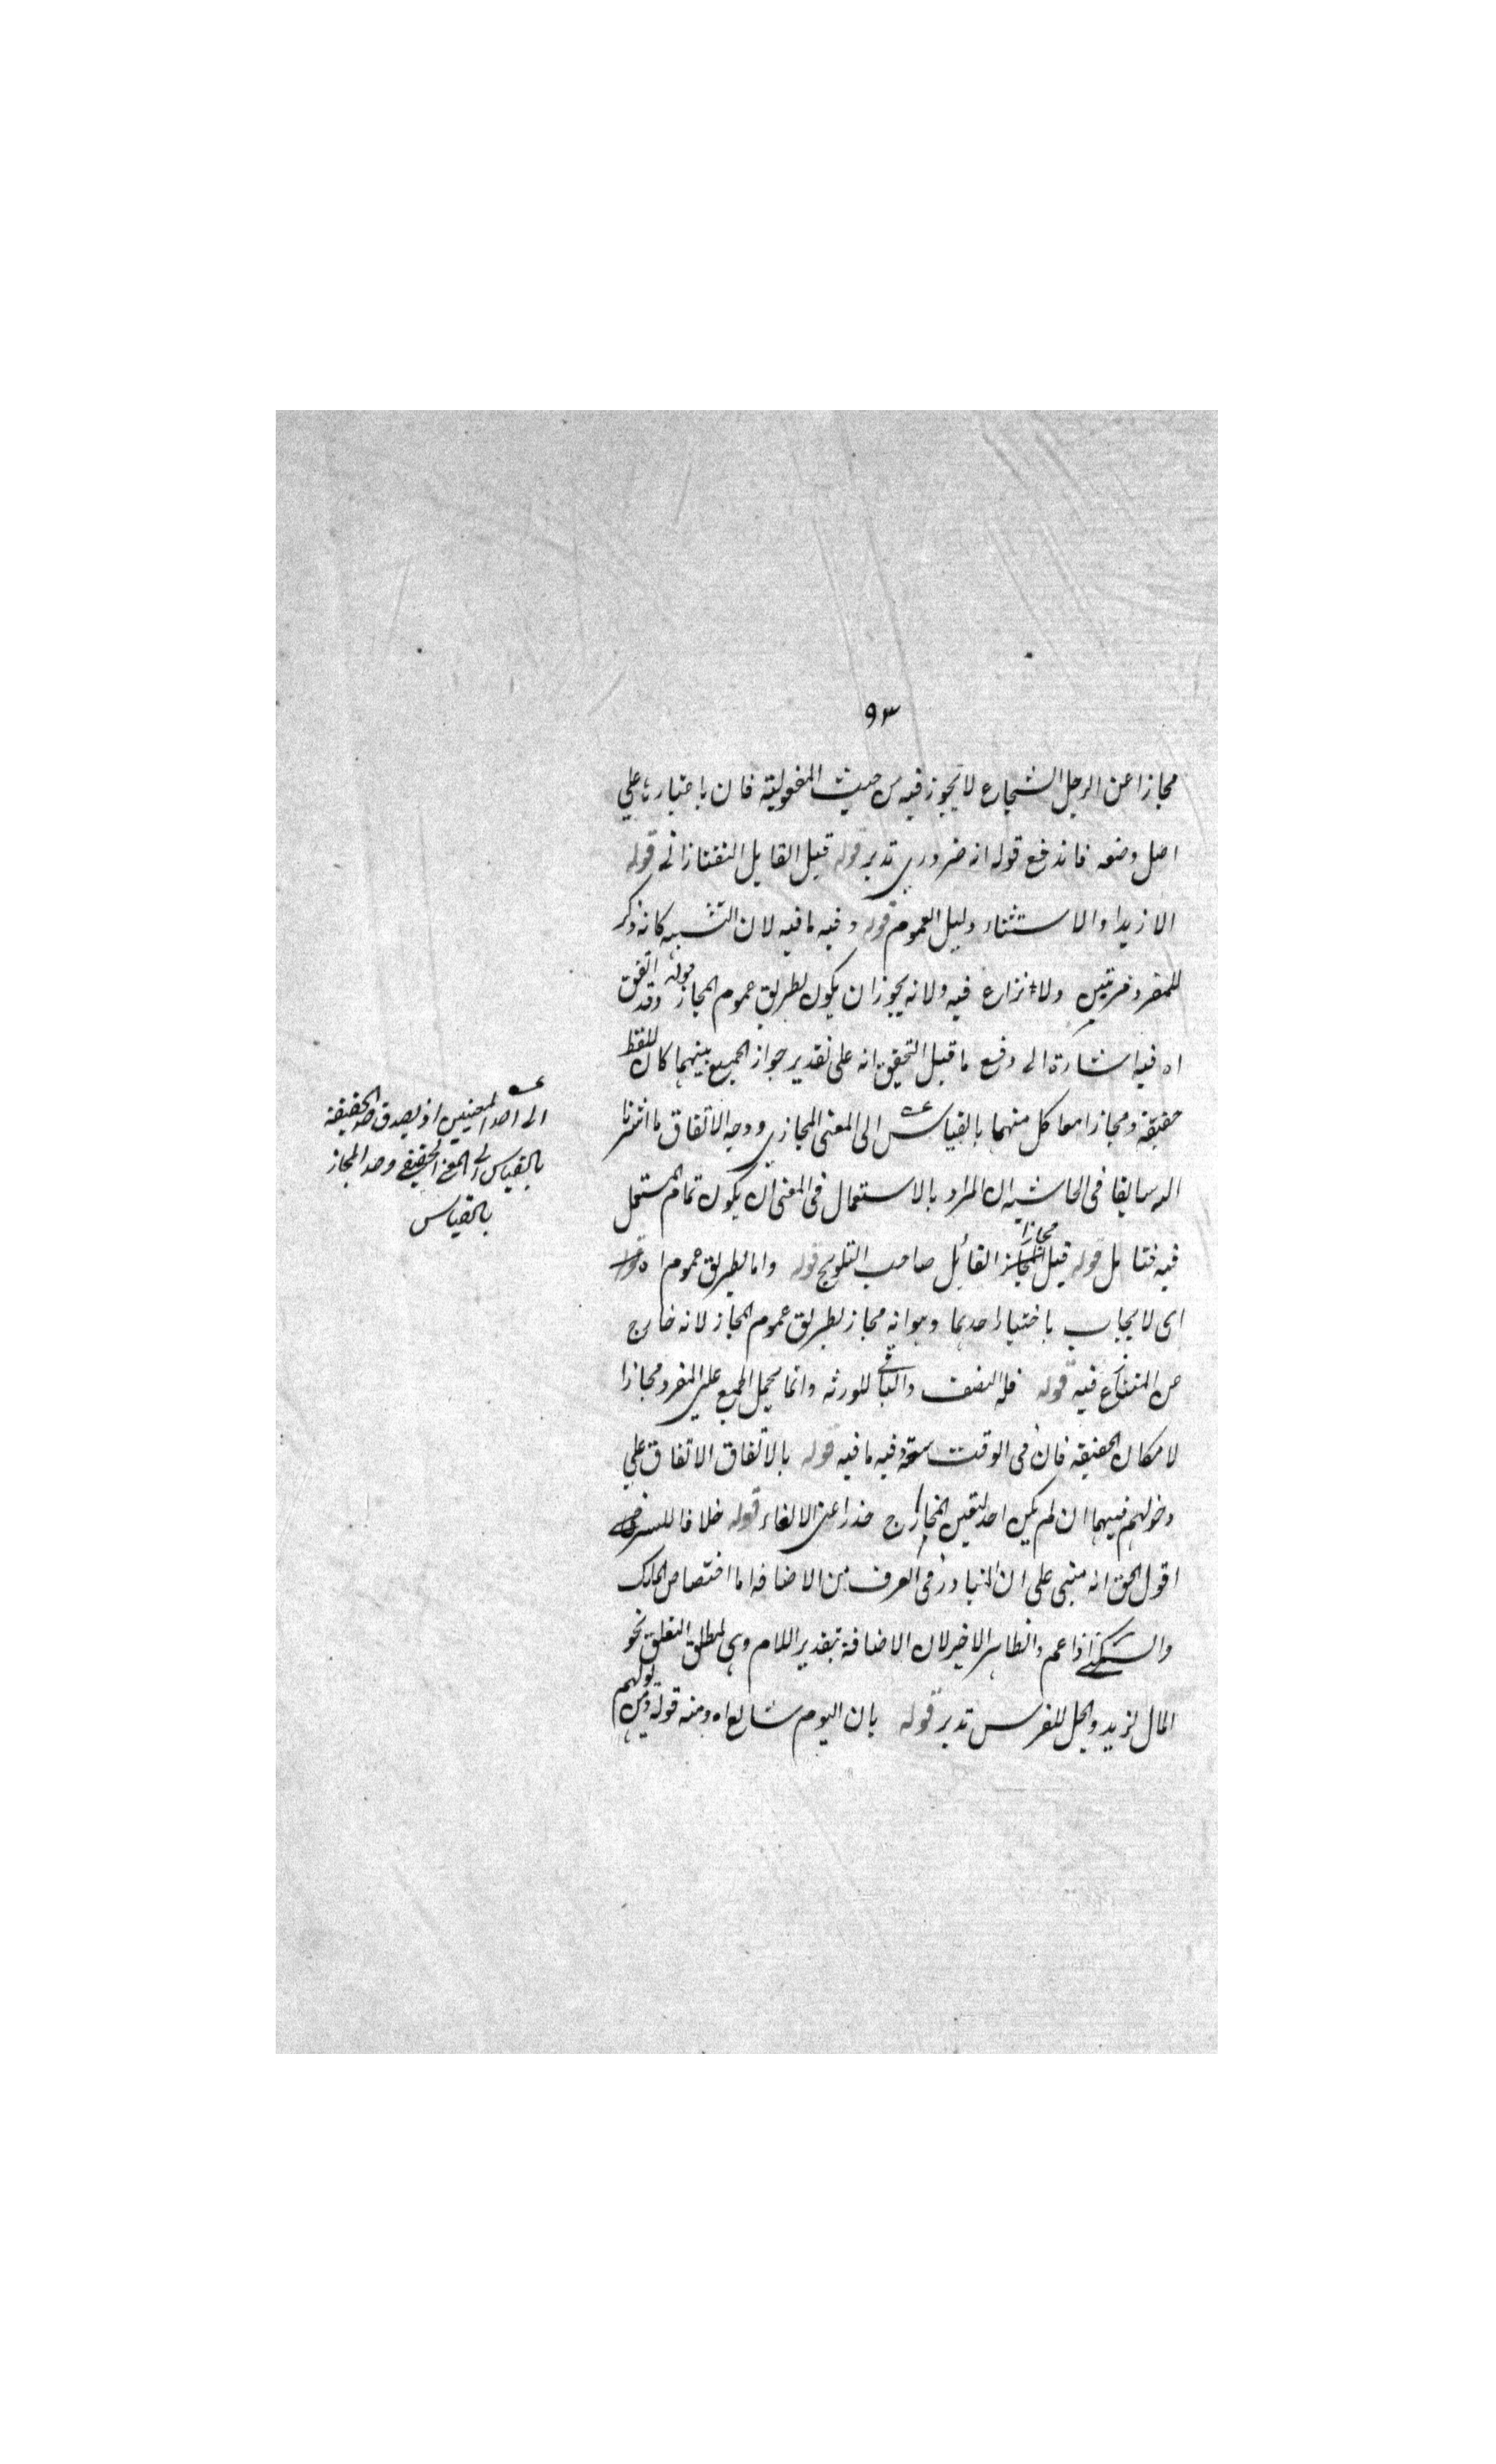 ٩٣
مجازا عن الرجل الشجاع لا تجوز فيه من حيث المفعولية فان باعتبارها على
اصل وضعه فاندفع قوله انه ضروري تدبر قوله قيل القايل التفتازاني قوله
الا زيدا والاستثناء دليل العموم قوله وفيه ما فيه لان التشبيه كانه ذكر
للمفرد مرتين ولا نزاع فيه ولانه يجوز ان يكون بطريق عموم المجاز قوله وقد اتفق
اه فيه اشارة الى دفع ما قيل التحقيق انه على تقدير جواز الجمع بينهما كان اللفظ
حقيقة ومجازا معا كل منهما بالقياس الى المعنى المجازي ووجه الاتفاق ما اشرنا
اليه سابقا في الحاشية ان المراد بالاستعمال في المعنى ان يكون تمام المستعمل
فيه فتامل قوله قيل مجازا القائل صاحب التلويح قوله واما بطريق عموم اه
اى لا يجاب باختيار احدهما وهو انه مجاز بطريق عموم المجاز لانه خارج
عن المتنازع فيه قوله فله النصف والباقى للورثة وانما يحمل الجمع على المفرد مجازا
لامكان الحقيقة فان في الوقت سعة وفيه ما فيه قوله بالاتفاق الاتفاق على
دخولهم فيهما ان لم يكن احد لتعين المجاز ح حذرا عن الالغاء قوله خلافا للسرخسى
اقول الحق انه مبنى على ان المتبادر في العرف من الاضافة اما اختصاص الملك
والسكنى او اعم والظاهر الاخير لان الاضافة بتقدير اللام وهى لمطلق التعلق نحو
المال لزيد والجل للفرس تدبر قوله بان اليوم شايع اه ومنه قوله ومن يولهم
الى احد المعنيين اذ يصدق حد الحقيقة
بالقياس الى المعنى الحقيقى وحد المجاز
بالقياس